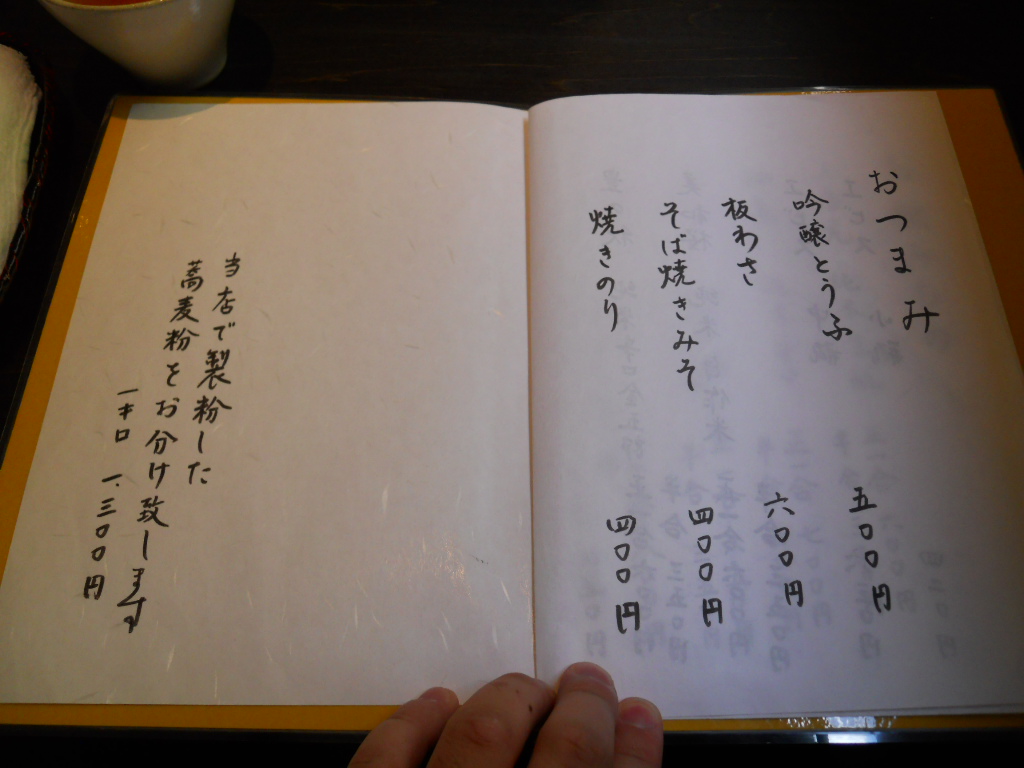 おつまみ
吟醸とうふ 五〇〇円
板わさ 六〇〇円
そば焼きみそ 四〇〇円
焼きのり 四〇〇円
当店で製粉した
蕎麦粉をお分け致します
一キロ 一、三〇〇円